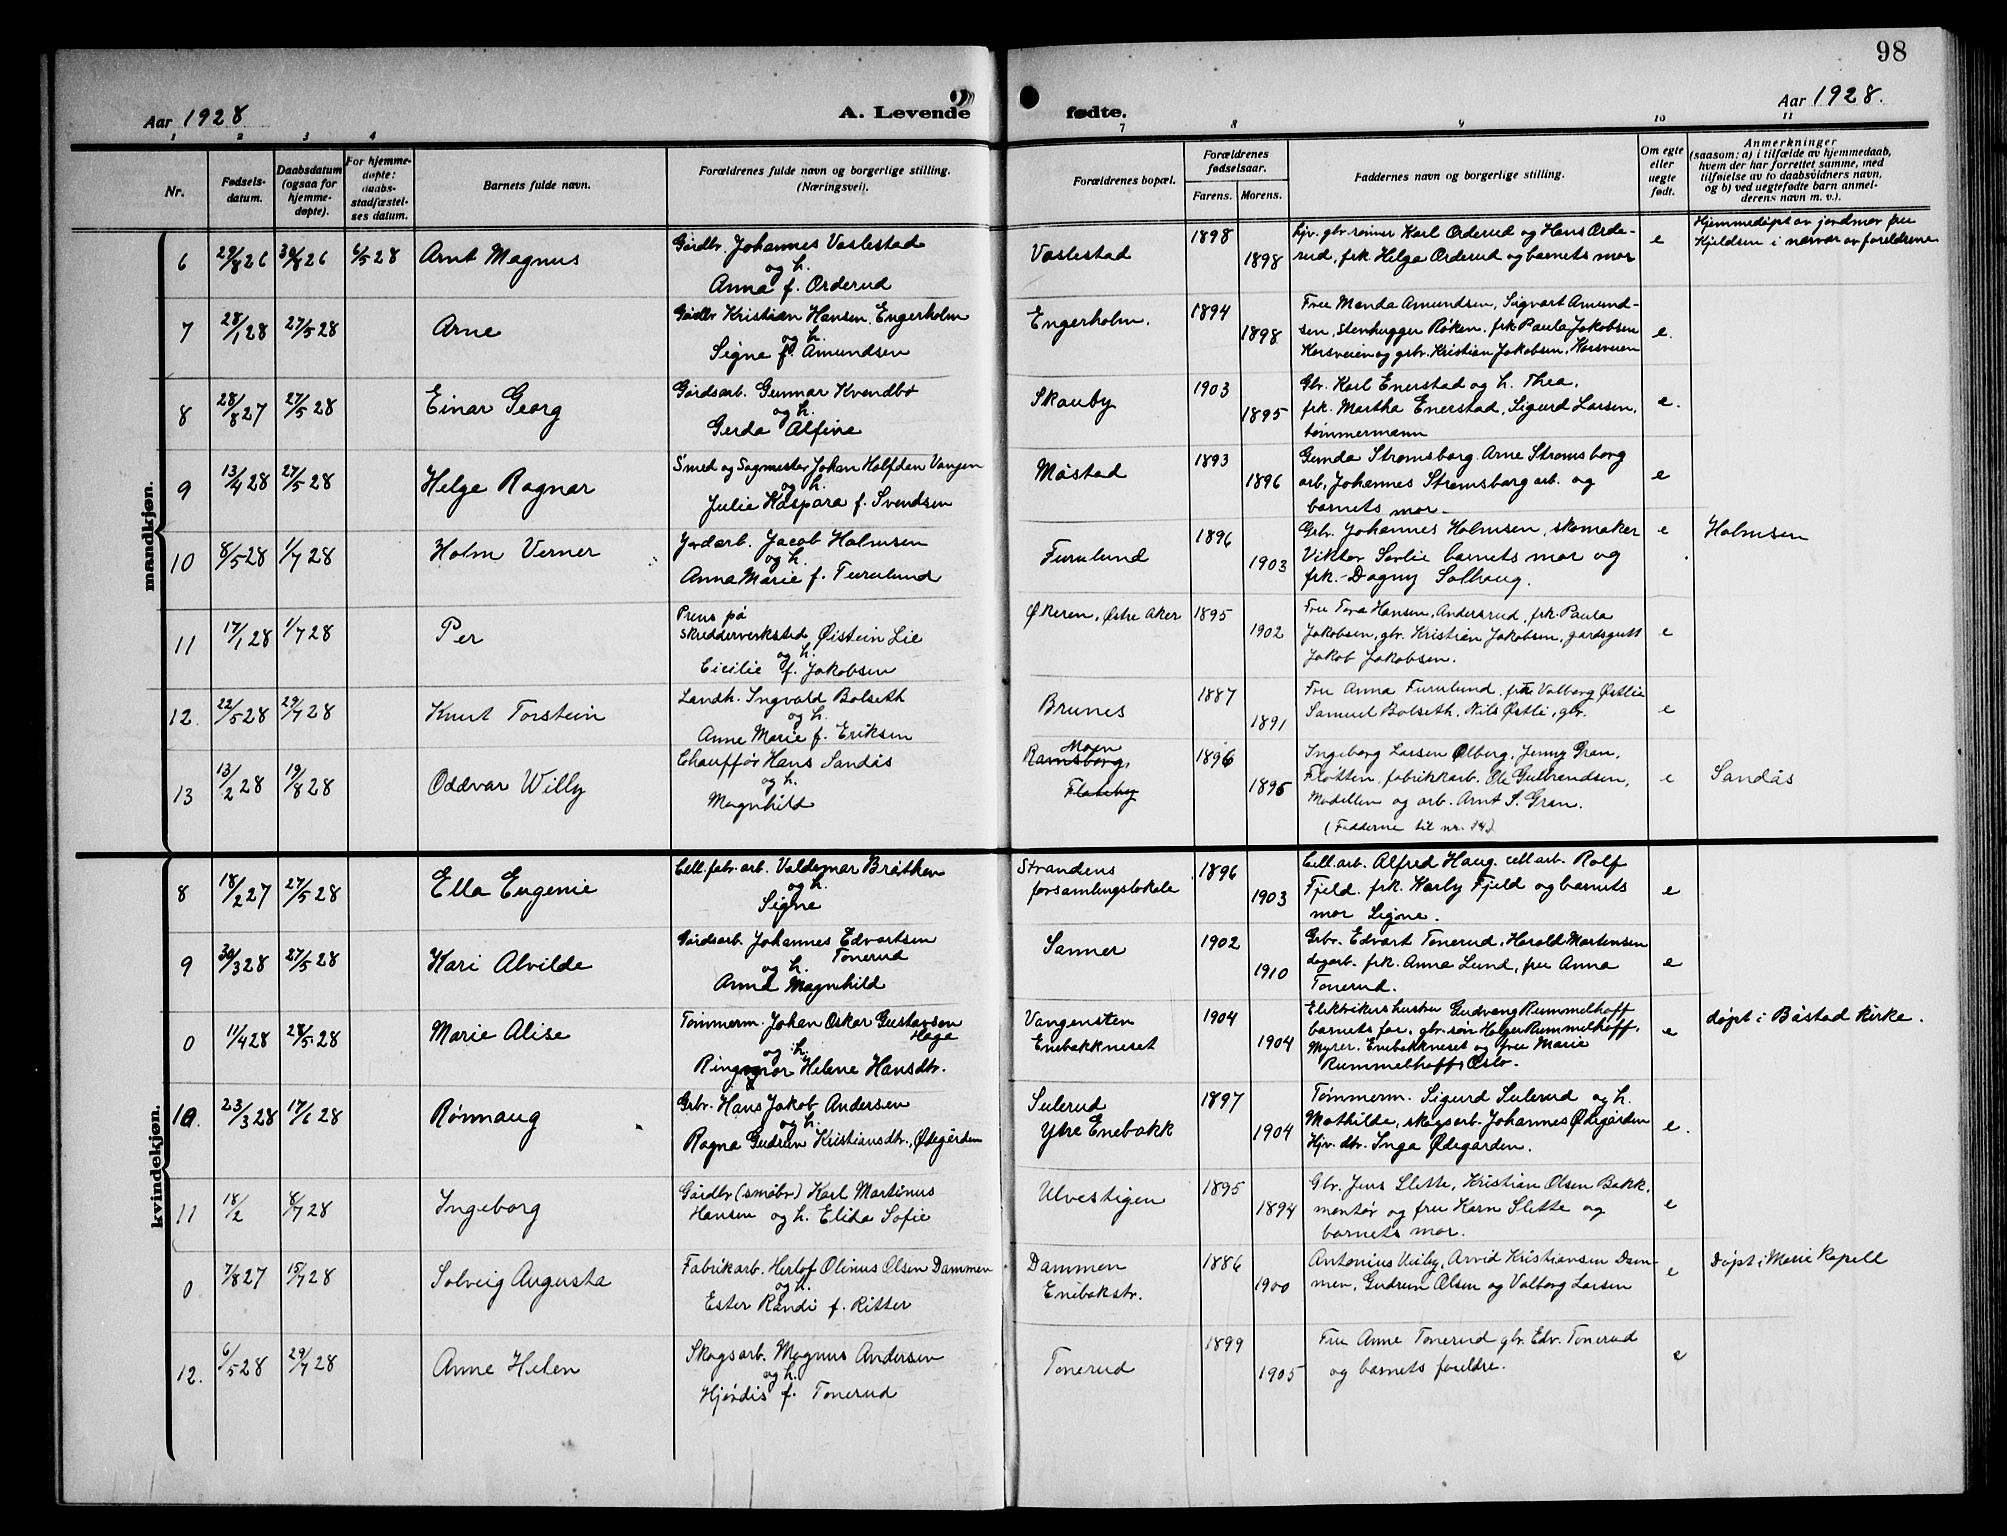 98
Aar 1928
A. Levende
fødte.
Aar 1928.
1 2 3 4 7 8 9 10 11
Nr.
Fødsels-
datum.
Daabsdatum
(ogsaa for
hjemme-
døpte).
For hjemme-
døpte:
daabs-
stadfæstel-
ses datum.
Barnets fulde navn.
Forældrenes fulde navn og borgerlige stilling.
(Næringsvei).
Forældrenes bopæl.
Forældrenes
fødselsaar.
Farens. Morens.
Faddernes navn og borgerlige stilling.
Om egte
eller
uegte
født.
Anmerkninger
(saasom: a) i tilfælde av hjemmedaab,
hvem der har forrettet samme, med
tilføielse av to daabsvidners navn,
og b) ved uegtefødte barn anmel-
derens navn m. v.).
mandkjøn.
6 29/8 26 30/8 26 6/5 28 Arnt Magnus
Gårdbr. Johannes Vaslestad
og h.
Anna f. Orderud
Vaslestad
1898
1898
hjv. gbr. sønner Karl Orderud og Hans Orde-
rud, frk. Helga Orderud og barnets mor
e
Hjemmedøpt av jordmor fru
Kjeldsen i nærvær av foreldrene
7 28/1 28 27/5 28 Arne
Gårdbr Kristian Hansen Engerholm
og h.
Signe f. Amundsen
Engerholm.
1894
1898
Frue Manda Amundsen, Sigvart Amund-
sen, stenhugger Røken. frk Paula Jakobsen
Korsveien og gbr. Kristian Jakobsen, Korsveien
e.
8 28/8 27 27/5 28 Einar Georg
Gårdsarb. Gunnar Kvendbø
og h.
Gerda Alfine
Skauby
1903
1895
Gbr. Karl Enerstad og h. Thea,
frk. Martha Enerstad, Sigurd Larsen,
tømmermann
e.
9 13/4 28 27/5 28 Helge Ragnar
Smed og Sagmester Johan Halfden Vangen
og h.
Julie Kaspara f. Svendsen
Måstad
1893
1896
Gunda Strømsborg. Arne Strømsborg
arb. Johannes Strømsborg arb. og
barnets mor.
e
10 8/5 28 1/7 28 Holm Verner
Jordarb. Jacob Holmsen
og h.
Anna Marie f. Furulund
Furulund
1896
1903
Grbr. Johannes Holmsen, skomaker
Viktor Sørlie barnets mor og
frk. Dagny Solhaug.
e
Holmsen
11 17/1 28 1/7 28 Per
Press på
skredderverksted Øistein Lie
og h.
Cicilie f. Jakobsen
Økeren, Østre Aker
1895
1902
Fru Tora Hansen, Andersrud, frk. Paula
Jakobsen, gbr. Kristian Jakobsen, gardsgutt
Jakob Jakobsen.
e
12. 22/5 28 29/7 28 Knut Torstein
Landh. Ingvald Bolseth
og h.
Anne Marie f. Eriksen
Brunes
1887
1891
Fru Anna Furulund, fru Valborg Østlie
Samuel Bolseth. Nils Østli, gbr.
e
13 13/2 28 19/8 28 Oddvar Willy
Chauffør Hans Sandås
og h.
Magnhild
Moen
Ramsborg,
Flateby
1896
1895
Ingeborg Larsen Ølberg, Jenny Gran,
Fløtten, fabrikkarb. Ole Gulbrandsen,
Modellen og arb. Arnt S. Gran.
(Fadderne til nr. 14)
e
Sandås
kvindekjøn.
8 18/2 27 27/5 28 Ella Eugenie
Cell. fabr. arb. Valdemar Bråthen
og h.
Signe
Strandens
forsamlingslokale
1896
1903
Cell. arb. Alfred Haug. cell arb. Rolf
Fjeld. frk. Karly Fjeld og barnets
mor Signe.
e
9 30/3 28 27/5 28 Kari Alvilde
Gårdsarb. Johannes Edvartsen
Tonerud
og h.
Anna Magnhild
Sanner
1902
1910
Grbr. Edvart Tonerud, Harald Martensen
dagarb. frk. Anna Lund, fru Anna
Tonerud.
e
0 11/4 28 28/5 28 Marie Alise
Tømmerm. Johan Oskar Gustavsen
Haga
og h.
Ringmor Helene Hansdtr.
Vangensten
Enebakkneset
1904
1904
Elektrikers hustru Gudvang Rummelhoff
barnets far, gbr. søn Helge Rummelhoff,
Myrer. Enebakkneset og frue Marie
Rummelhoff, Oslo.
e
døpt i Båstad kirke.
10. 23/3 28 17/6 28 Rønnaug
Grbr. Hans Jakob Andersen
og h.
Ragna Gudrun Kristiansdtr., Ødegården
Sulerud
Ytre Enebakk
1897
1904
Tømmerm. Sigurd Sulerud og h.
Mathilde, skogsarb. Johannes Ødegården
Hjv. dtr. Inga Ødegården.
e.
11 18/2 8/7 28 Ingeborg
Gårdbr (småbr) Karl Martinus
Hansen og h. Elida Sofie
Ulvestigen
1895
1894
Gbr. Jens Slette, Kristian Olsen Bakk.
montør og fru Karn Slette og
barnets mor.
e
0 7/8 27 15/7 28 Solveig Augusta
Fabrikarb. Herlof Olinus Olsen Dammen
og h.
Ester Randi f. Ritter
Dammen
Enebakstr.
1886
1900
Antonius Visby, Arvid Kristiansen Dam-
men, Gudrun Olsen og Valborg Larsen
e
Døpt i Marie Kapell
12. 6/5 28 29/7 28 Anne Helen
Skogsarb. Magnus Andersen
og h.
Hjørdis f. Tonerud
Tonerud
1899
1905
Fru Anne Tonerud gbr. Edv. Tonerud
og barnets foreldre.
e